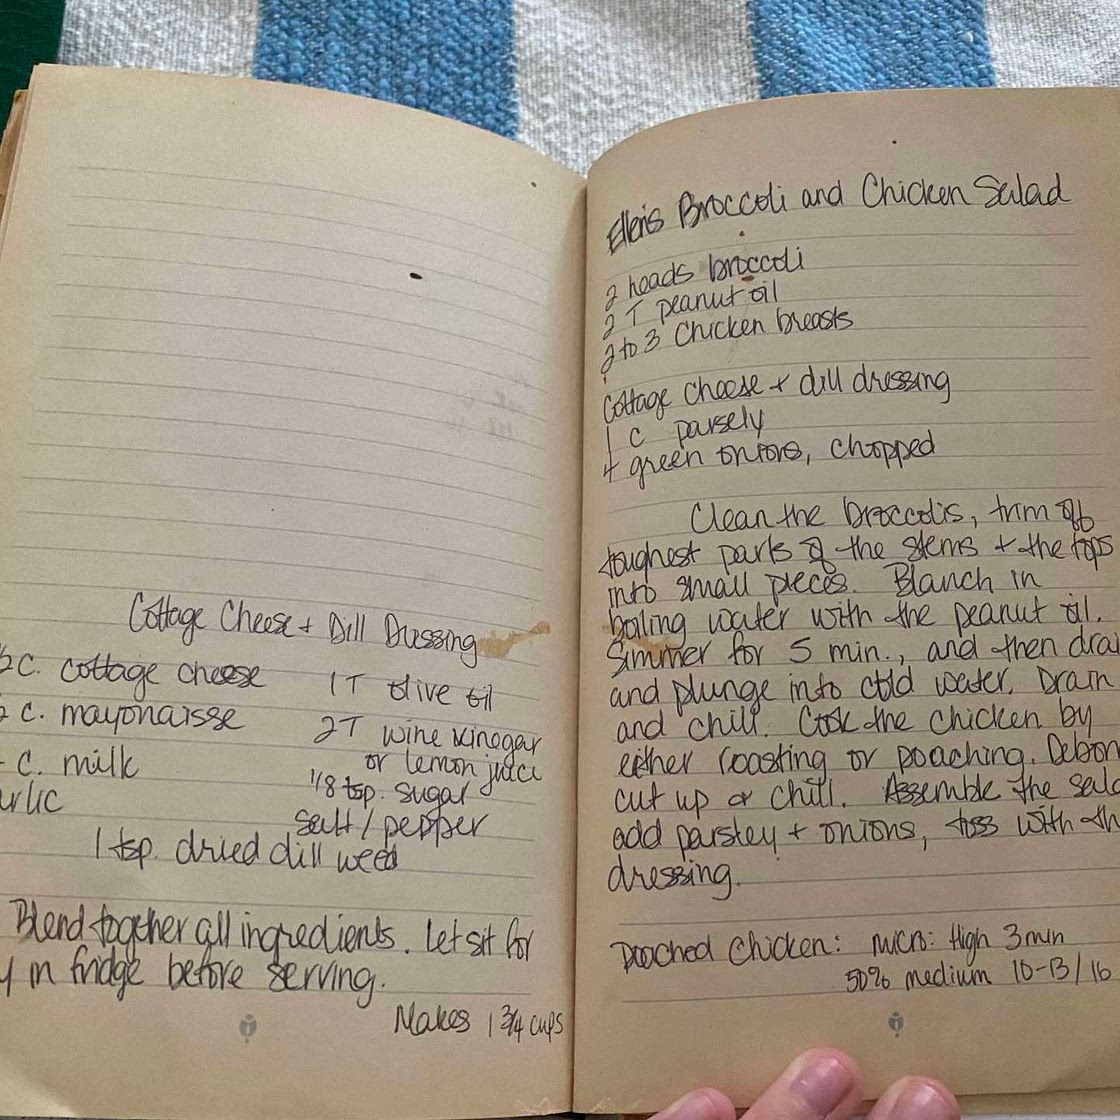 Cottage Cheese + Dill Dressing
C. cottage cheese
1 T olive oil
C. mayonaisse
2 T wine vinegar
or lemon juice
C. milk
1/8 tsp. sugar
salt / pepper
1 tsp. dried dill weed
Blend together all ingredients. Let sit for
in fridge before serving.
Makes 1 3/4 cups
Ellen's Broccoli and Chicken Salad
2 heads broccoli
2 T peanut oil
2 to 3 Chicken breasts
Cottage Cheese + dill dressing
1 C parsely
4 green onions, chopped
Clean the broccolis, trim off
toughest parts of the stems + the tops
into small pieces. Blanch in
boiling water with the peanut oil.
Simmer for 5 min., and then drai
and plunge into cold water. Drain
and chill. Cook the chicken by
either roasting or poaching. Debon
cut up & chill. Assemble the sala
add parsley + onions, toss with th
dressing.
Poached Chicken: micro: High 3 min
50% medium 10-13/16